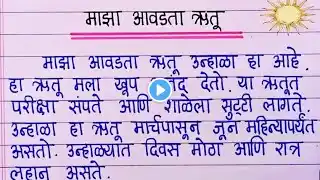 माझा आवडता ऋतू
माझा आवडता ऋतू उन्हाळा हा आहे.
हा ऋतू मला खूप देतो. या ऋतूत
परीक्षा संपते आणि शाळेला सुट्टी लागते.
उन्हाळा हा ऋतू मार्चपासून जून महिन्यापर्यंत
असतो. उन्हाळ्यात दिवस मोठा आणि रात्र
लहान असते.